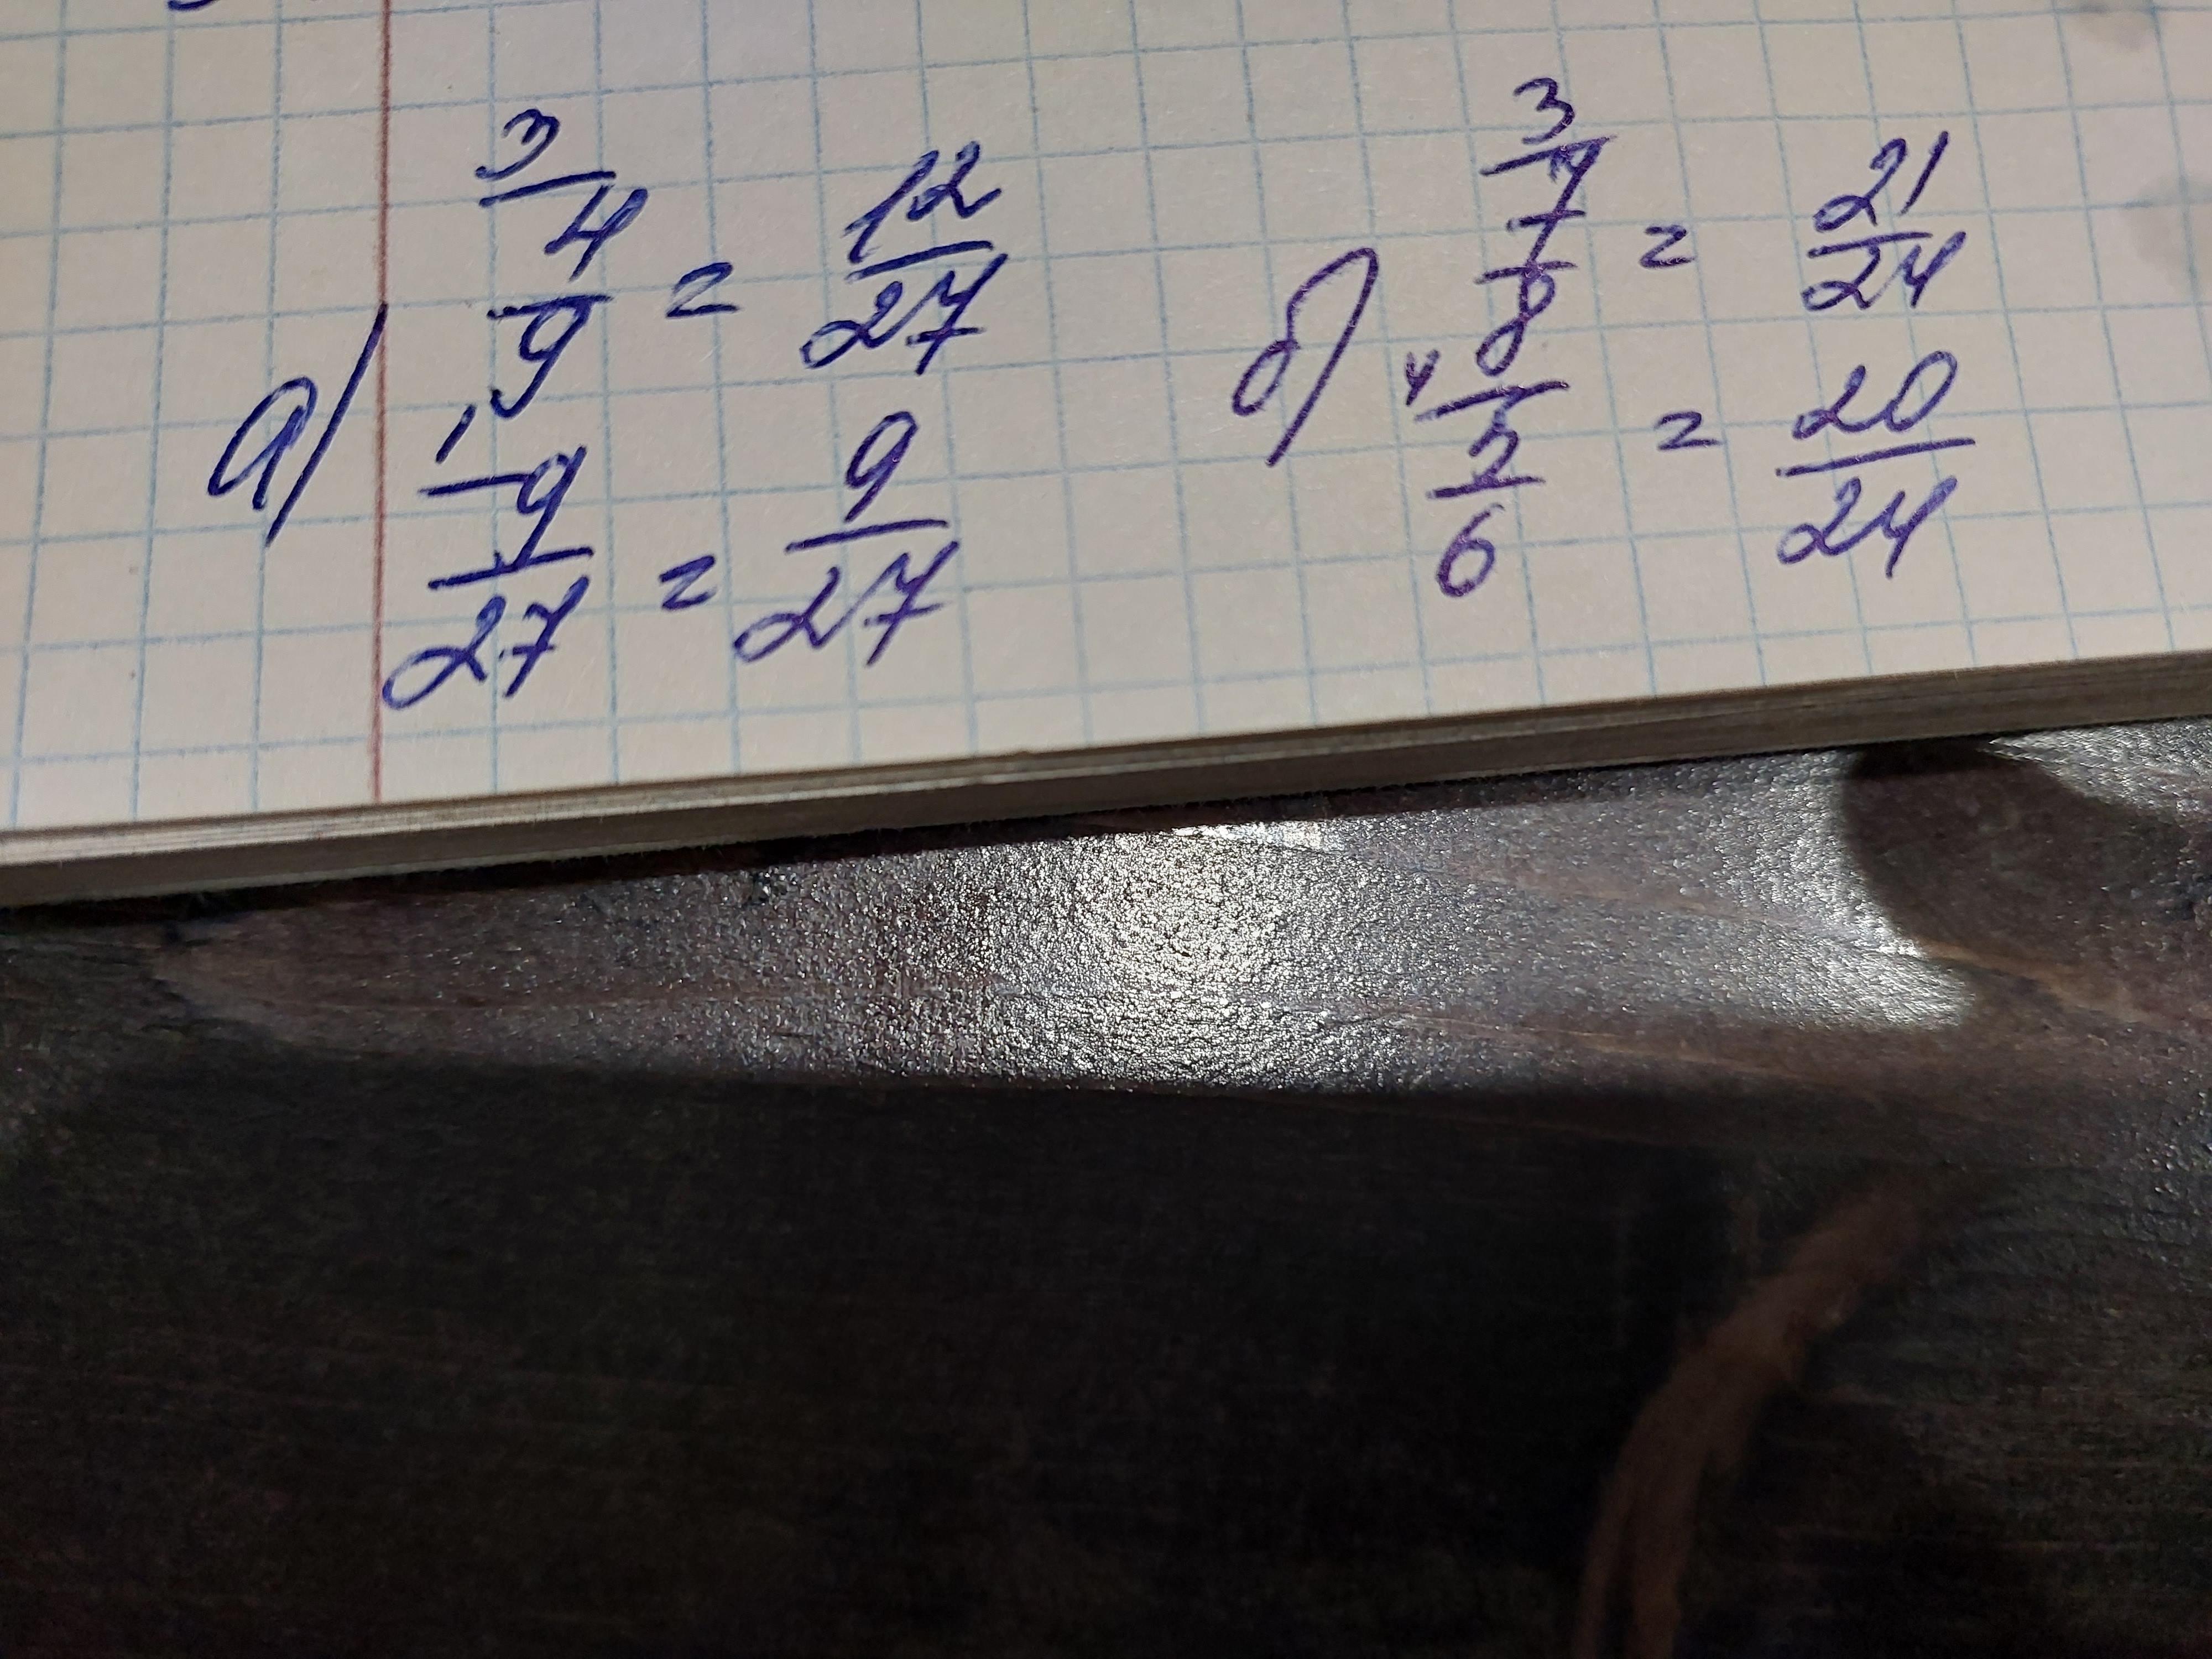 а) 3/ 4/9 = 12/27
1/ 9/27 = 9/27
б) 3/ 7/8 = 21/24
4/ 5/6 = 20/24